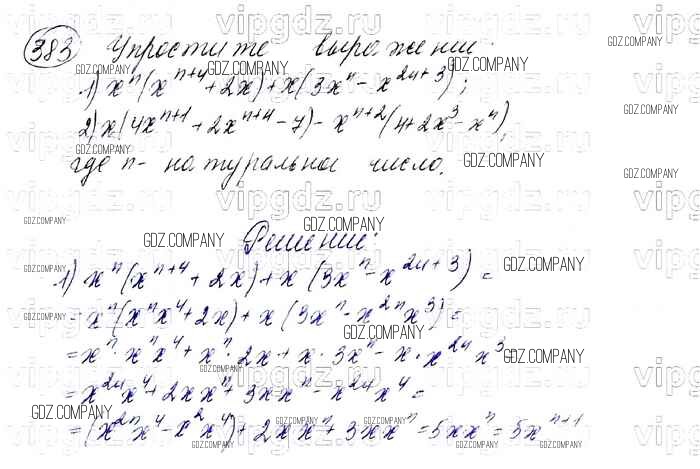 383 Упростите выражение:
1) x^n(x^{n+4} + 2x) + x(3x^n - x^{2n+3});
2) x(4x^{n+1} + 2x^{n+4} - 7) - x^{n+2}(4 + 2x^3 - x^n),
где n - натуральное число.
Решение:
1) x^n(x^{n+4} + 2x) + x(3x^n - x^{2n+3}) =
= x^n(x^n x^4 + 2x) + x(3x^n - x^{2n} x^3) =
= x^n · x^n x^4 + x^n · 2x + x · 3x^n - x · x^{2n} x^3 =
= x^{2n} x^4 + 2xx^n + 3xx^n - x^{2n} x^4 =
= (x^{2n} x^4 - x^2 x^4) + 2xx^n + 3xx^n = 5xx^n = 5x^{n+1}
GDZ.COMPANY
vipgdz.ru